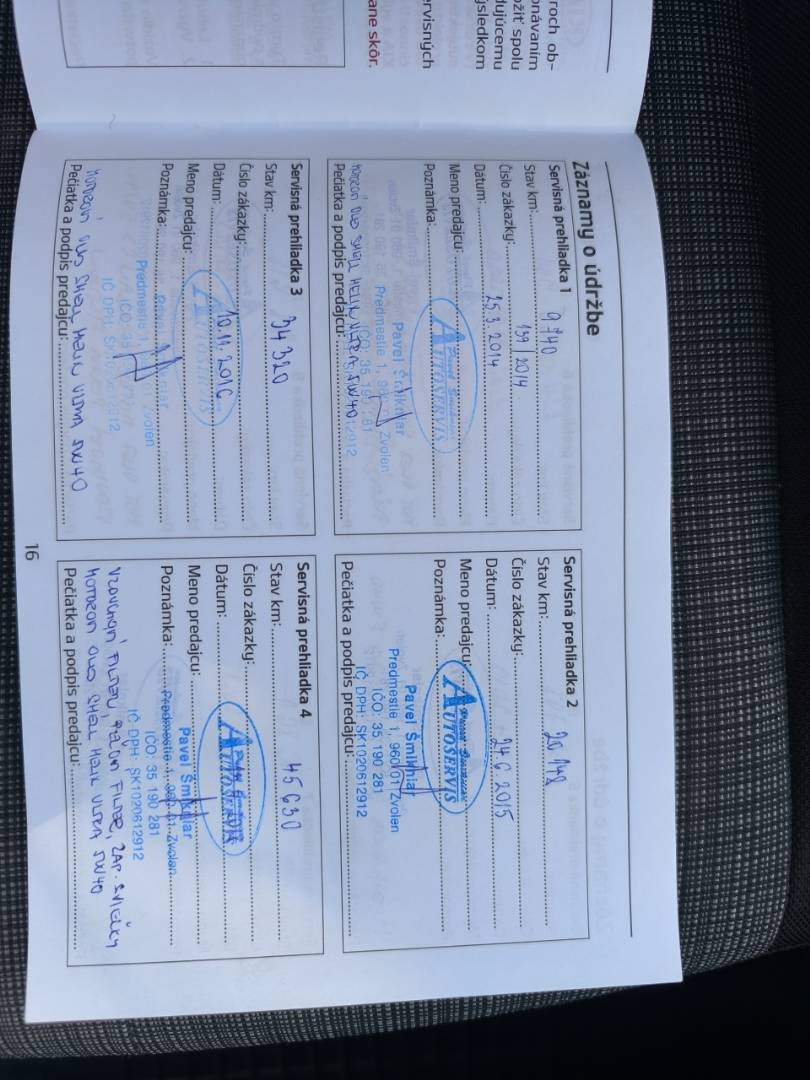 roch ob-
onávaním
ožiť spolu
dujúcemu
ýsledkom
ervisných
ane skôr.
Záznamy o údržbe
Servisná prehliadka 1
Stav km: 9 740
Číslo zákazky: 139/2014
Dátum: 25.3.2014
Meno predajcu:
Poznámka:
AUTOSERVIS
Pavel Šmikniar
Predmestie 1, 960 01 Zvolen
MOTOROVÝ OLEJ SHELL HELIX ULTRA 5W40
Pečiatka a podpis predajcu:
Servisná prehliadka 2
Stav km:
Číslo zákazky:
Dátum: 24.6.2015
Meno predajcu:
Poznámka:
AUTOSERVIS
Pavel Šmikniar
Predmestie 1, 960 01 Zvolen
IČO: 35 190 281
IČ DPH: SK1020612912
Pečiatka a podpis predajcu:
Servisná prehliadka 3
Stav km: 34 320
Číslo zákazky:
Dátum: 10.11.2016
Meno predajcu:
AUTOSERVIS
Poznámka:
Predmestie 1, Zvolen
OLEJ SHELL HELIX ULTRA 5W40
Pečiatka a podpis predajcu:
Servisná prehliadka 4
Stav km: 45 630
Číslo zákazky:
Dátum:
Meno predajcu:
AUTOSERVIS
Pavel Šmikniar
Poznámka: Predmestie 1, 960 01 Zvolen
IČO: 35 190 281
IČ DPH: SK1020612912
VZDUCHOVÝ FILTER, PEĽOVÝ FILTER, ZAP. SVIEČKY
OLEJ SHELL HELIX ULTRA 5W40
Pečiatka a podpis predajcu:
16